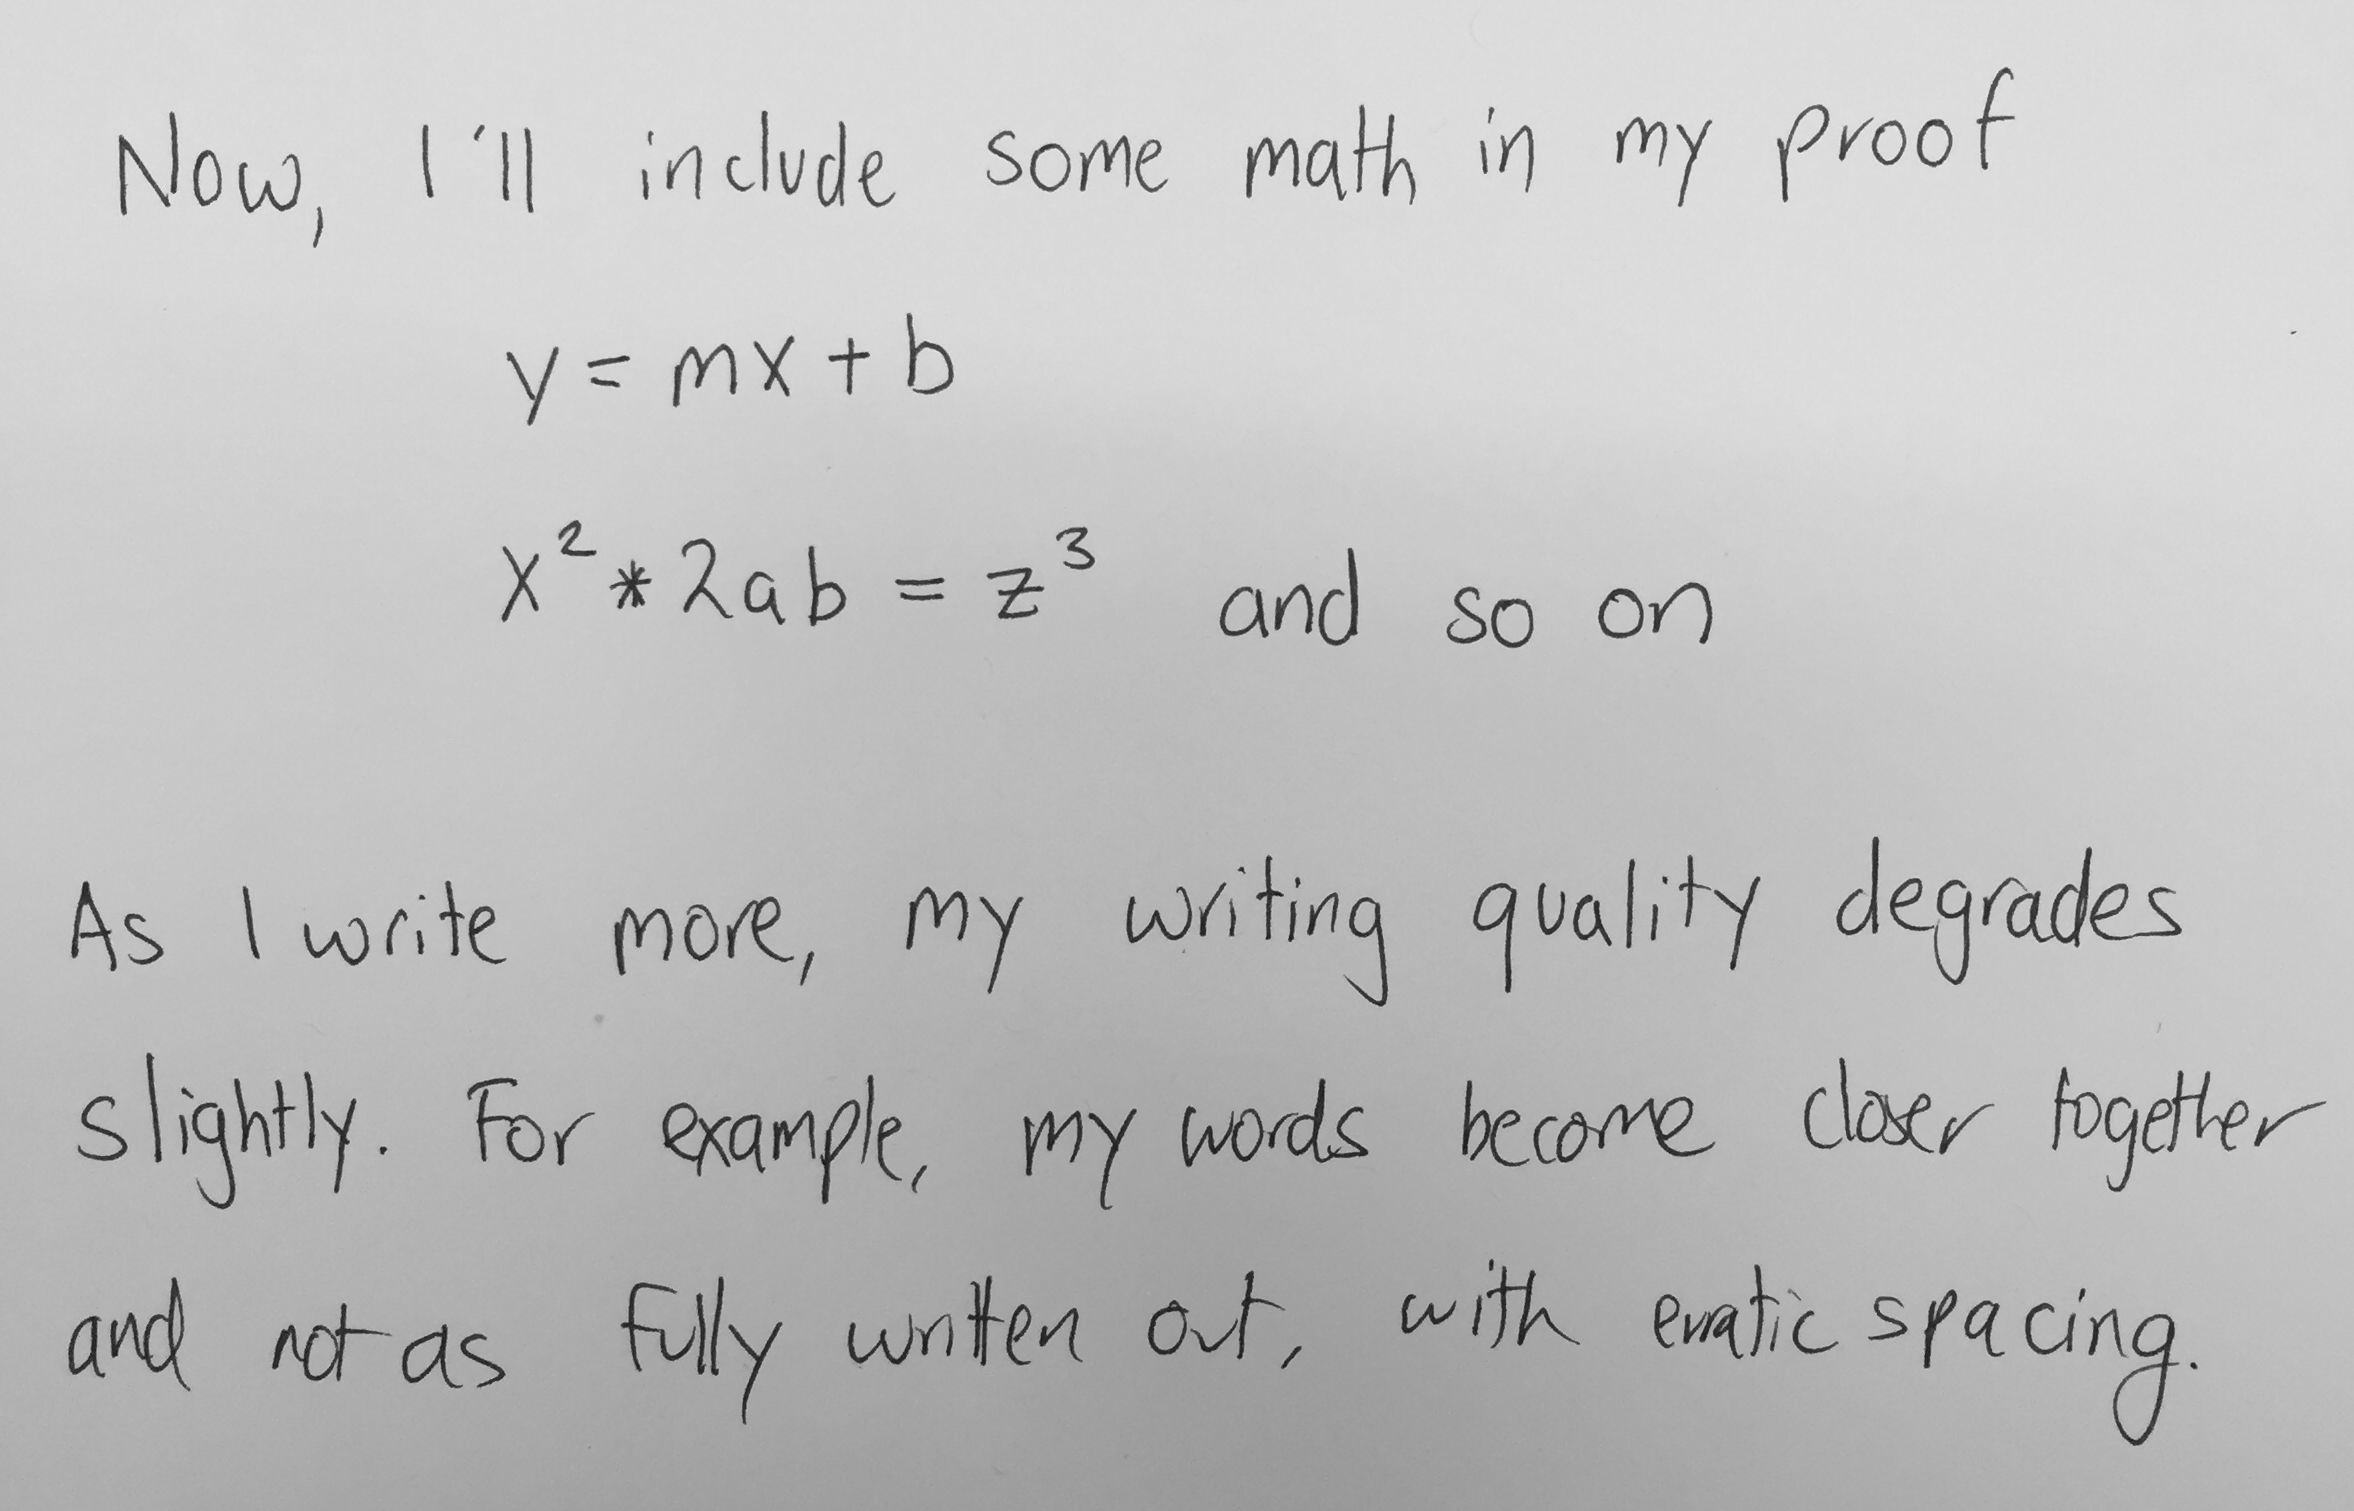 Now, I'll include some math in my proof
y = mx + b
x² * 2ab = z³ and so on
As I write more, my writing quality degrades
slightly. For example, my words become closer together
and not as fully written out, with erratic spacing.